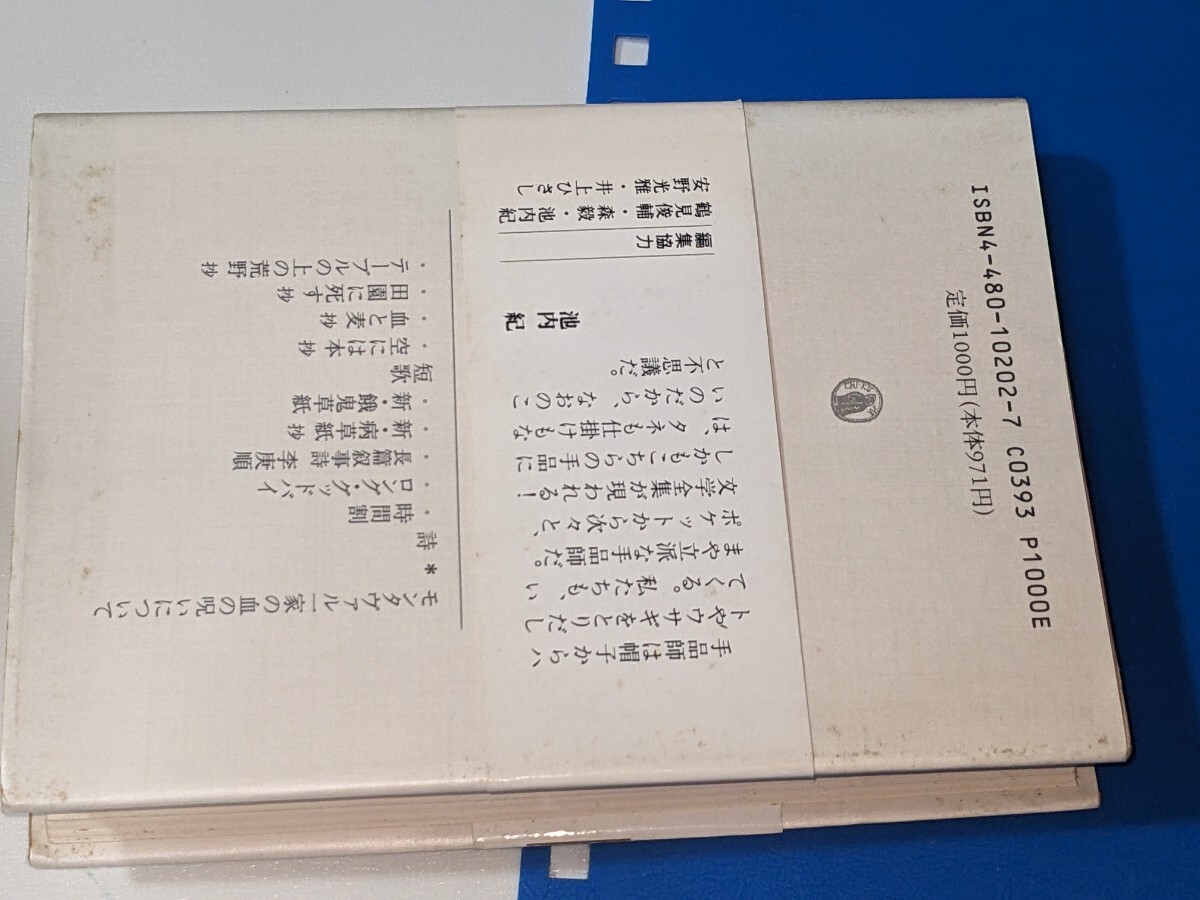 ISBN4-480-10202-7 C0393 P1000E
定価1000円(本体971円)
手品師は帽子からハ
トやウサギをとりだし
てくる。私たちも、い
まや立派な手品師だ。
ポケットから次々と、
文学全集が現われる!
しかもこちらの手品に
は、タネも仕掛けもな
いのだから、なおのこ
と不思議だ。
池内 紀
編集協力
鶴見俊輔・森毅・池内紀
安野光雅・井上ひさし
モンタヴァル一家の血の呪いについて
*
詩
・時間割
・ロング・グッドバイ
・長篇叙事詩 李庚順
・新・病草紙 抄
・新・餓鬼草紙
短歌
・空には本 抄
・血と麦 抄
・田園に死す 抄
・テーブルの上の荒野 抄